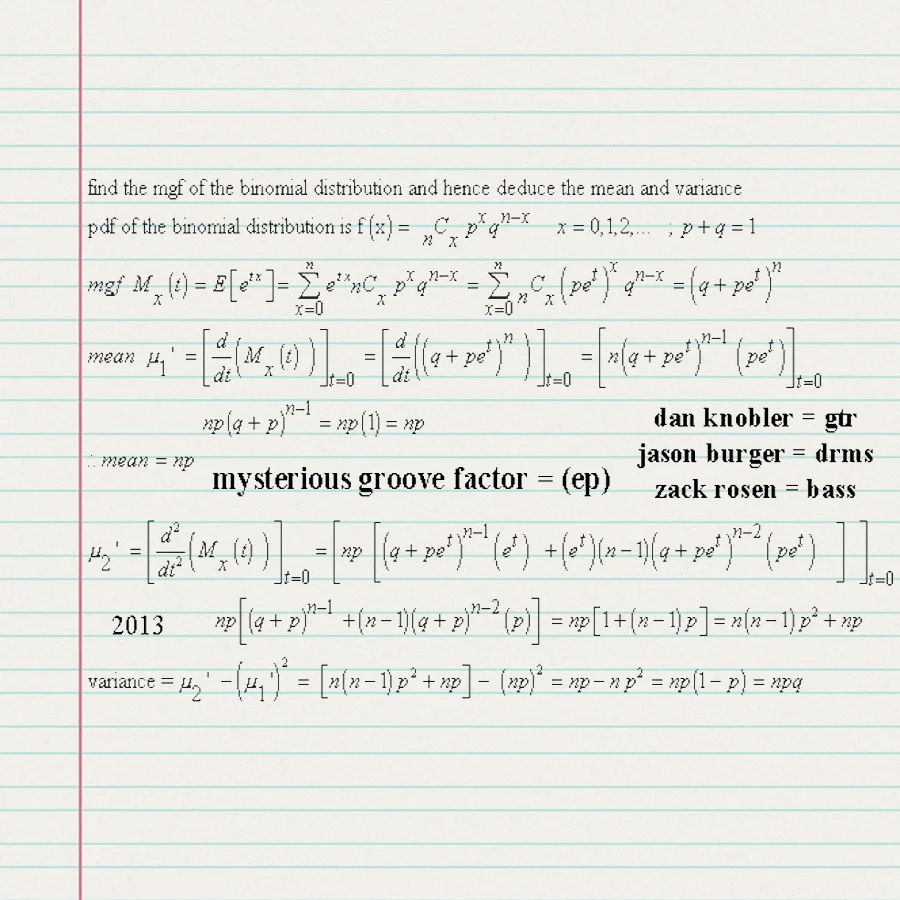 find the mgf of the binomial distribution and hence deduce the mean and variance
pdf of the binomial distribution is f (x) = ₙCₓ pˣqⁿ⁻ˣ x = 0,1,2,... ; p + q = 1
mgf Mₓ(t) = E[eᵗˣ] = ∑ₓ₌₀ⁿ eᵗˣnCₓ pˣqⁿ⁻ˣ = ∑ₓ₌₀ⁿ ₙCₓ (peᵗ)ˣ qⁿ⁻ˣ = (q + peᵗ)ⁿ
mean μ₁' = [d/dt (Mₓ(t))]ₜ₌₀ = [d/dt ((q + peᵗ)ⁿ)]ₜ₌₀ = [n(q + peᵗ)ⁿ⁻¹ (peᵗ)]ₜ₌₀
np(q + p)ⁿ⁻¹ = np(1) = np
∴ mean = np
mysterious groove factor = (ep)
dan knobler = gtr
jason burger = drms
zack rosen = bass
μ₂' = [d²/dt² (Mₓ(t))]ₜ₌₀ = [np [(q + peᵗ)ⁿ⁻¹ (eᵗ) + (eᵗ)(n−1)(q + peᵗ)ⁿ⁻² (peᵗ)]]ₜ₌₀
2013
np[(q + p)ⁿ⁻¹ + (n−1)(q + p)ⁿ⁻² (p)] = np[1+(n−1)p] = n(n−1)p² + np
variance = μ₂' − (μ₁')² = [n(n−1)p² + np] − (np)² = np − np² = np(1 − p) = npq